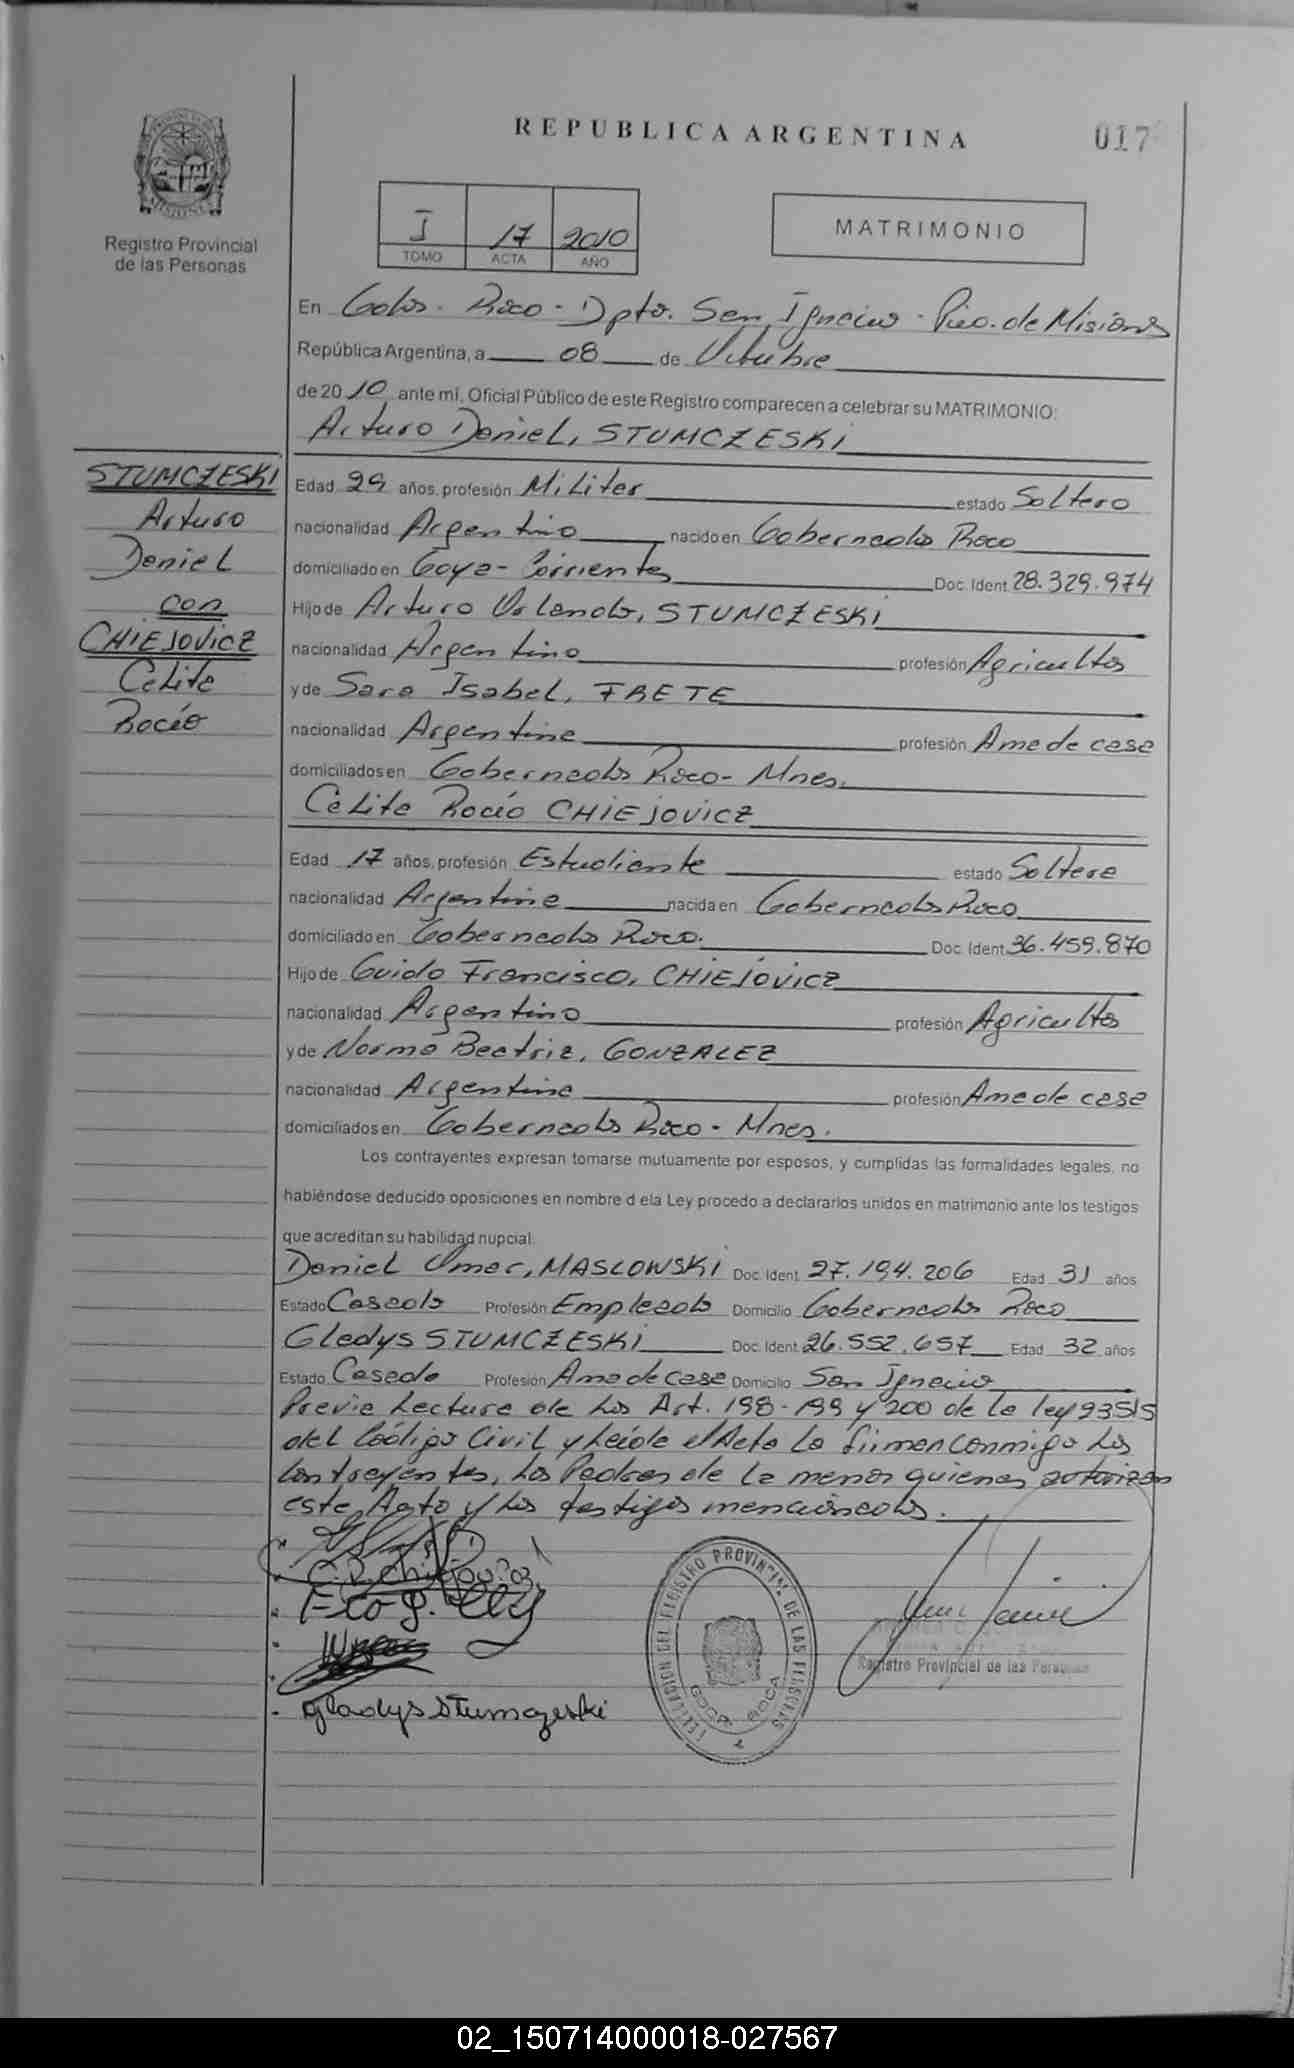 REPUBLICA ARGENTINA
017
Registro Provincial
de las Personas
I 17 2010
TOMO ACTA AÑO
MATRIMONIO
En Gobs. Roca - Dpto. San Ignacio - Pcia. de Misiones
República Argentina, a 08 de Octubre
de 20 10 ante mi, Oficial Público de este Registro comparecen a celebrar su MATRIMONIO:
Arturo Daniel, STUMCZESKI
STUMCZESKI
Arturo
Daniel
con
CHIEJOVICZ
Celita
Rocío
Edad 29 años, profesión Militar estado Soltero
nacionalidad Argentino nacido en Gobernador Roca
domiciliado en Goya - Corrientes Doc. Ident. 28.329.974
Hijo de Arturo Orlando, STUMCZESKI
nacionalidad Argentino profesión Agricultor
y de Sara Isabel, FRETE
nacionalidad Argentina profesión Ama de casa
domiciliados en Gobernador Roca - Mnes.
Celita Rocío CHIEJOVICZ
Edad 17 años, profesión Estudiante estado Soltera
nacionalidad Argentina nacida en Gobernador Roca
domiciliado en Gobernador Roca. Doc. Ident. 36.459.870
Hijo de Guido Francisco, CHIEJOVICZ
nacionalidad Argentino profesión Agricultor
y de Norma Beatriz, GONZALEZ
nacionalidad Argentina profesión Ama de casa
domiciliados en Gobernador Roca - Mnes.
Los contrayentes expresan tomarse mutuamente por esposos, y cumplidas las formalidades legales, no
habiéndose deducido oposiciones en nombre d ela Ley procedo a declararlos unidos en matrimonio ante los testigos
que acreditan su habilidad nupcial.
Daniel Omar, MASLOWSKI Doc. Ident. 27.194.206 Edad 31 años
Estado Casado Profesión Empleado Domicilio Gobernador Roca
Gladys STUMCZESKI Doc. Ident. 26.552.657 Edad 32 años
Estado Casada Profesión Ama de casa Domicilio San Ignacio
Previa Lectura de los Art. 198-199 y 200 de la ley 23515
del Código Civil y Leída el Acta la firman conmigo los
contrayentes, los Padres de la menor quienes autorizan
este Acto y los testigos mencionados.
Gladys Stumczeski
DELEGACION DEL REGISTRO PROVINCIAL DE LAS PERSONAS
GDOR. ROCA
Registro Provincial de las Personas
02_150714000018-027567